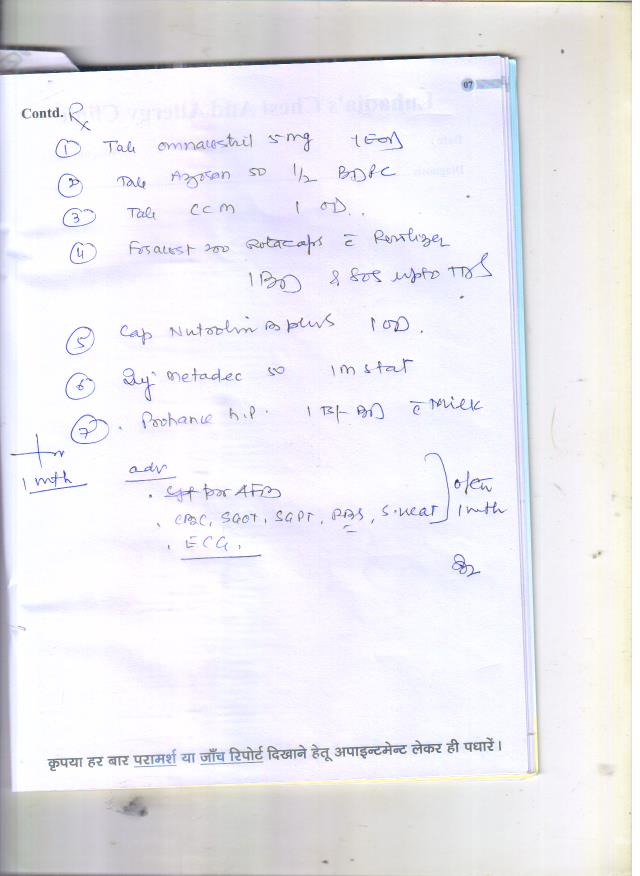 07
Contd. Rx
① Tab omnacortil 5 mg 1 EOD
② Tab Azoran 50 1/2 BD PC
③ Tab CCM 1 OD..
④ Foracort 200 Rotacaps c̄ Revolizer
1 BD & SOS upto TDS
⑤ Cap Nutrolin B plus 1 OD.
⑥ Inj Metadec 50 im stat
⑦ . Prohance h.p. 1 BD c̄ Milk
1 mth
adv
. for AFB
. CBC, SGOT, SGPT, RBS, S.
1 mth
. ECG.
कृपया हर बार परामर्श या जाँच रिपोर्ट दिखाने हेतू अपाइन्टमेन्ट लेकर ही पधारें।